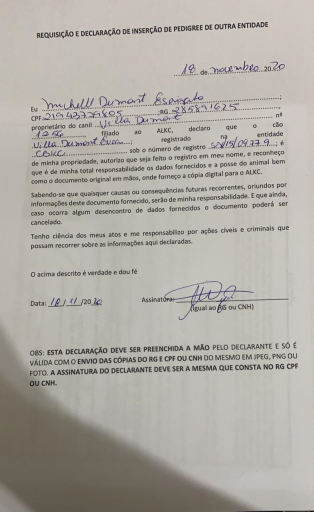 REQUISIÇÃO E DECLARAÇÃO DE INSERÇÃO DE PEDIGREE DE OUTRA ENTIDADE
18 de novembro 2020
Eu Michell Dumont
CPF RG 285891625
proprietário do canil Villa Dumont nº
1256 filiado ao ALKC, declaro que o cão
Villa Dumont registrado na entidade
CBKC sob o número de registro ; é
de minha propriedade, autorizo que seja feito o registro em meu nome, e reconheço
que é de minha total responsabilidade os dados fornecidos e a posse do animal bem
como o documento original em mãos, onde forneço a cópia digital para o ALKC.
Sabendo-se que quaisquer causas ou consequências futuras recorrentes, oriundos por
informações deste documento fornecido, serão de minha responsabilidade. E que ainda,
caso ocorra algum desencontro de dados fornecidos o documento poderá ser
cancelado.
Tenho ciência dos meus atos e me responsabilizo por ações cíveis e criminais que
possam recorrer sobre as informações aqui declaradas.
O acima descrito é verdade e dou fé
Data: 18/11/2020 Assinatura:
(igual ao RG ou CNH)
OBS: ESTA DECLARAÇÃO DEVE SER PREENCHIDA A MÃO PELO DECLARANTE E SÓ É
VÁLIDA COM O ENVIO DAS CÓPIAS DO RG E CPF OU CNH DO MESMO EM JPEG, PNG OU
FOTO. A ASSINATURA DO DECLARANTE DEVE SER A MESMA QUE CONSTA NO RG CPF
OU CNH.